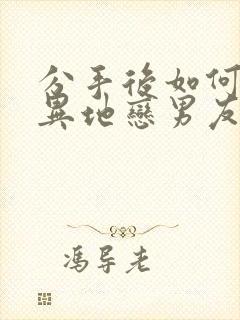 分手後如何
異地戀男友
馮导老